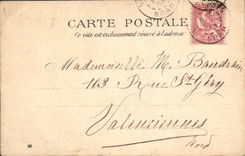 CARTE POSTALE
Ce côté est exclusivement réservé à l'adresse
Mademoiselle M. Baudrin
163 Rue St Géry
Valenciennes
Nord